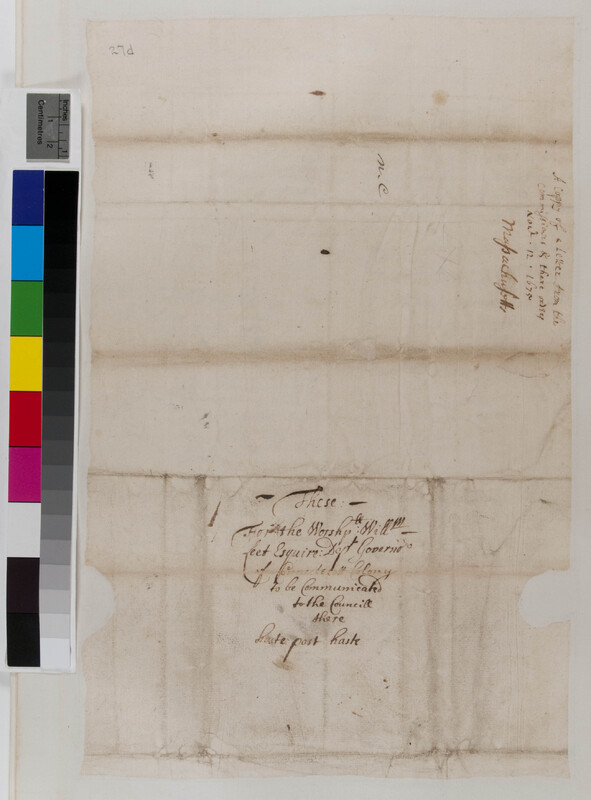 27d
Inches
Centimetres
1
2
1
N. C
A Copy of a letter from the
Commissioners &
Massachusetts
These:
For the Worshp:ll Willm
Leet Esquire: Dept Governor
of Colony
to be Communicated
to the Councill
there
haste post haste